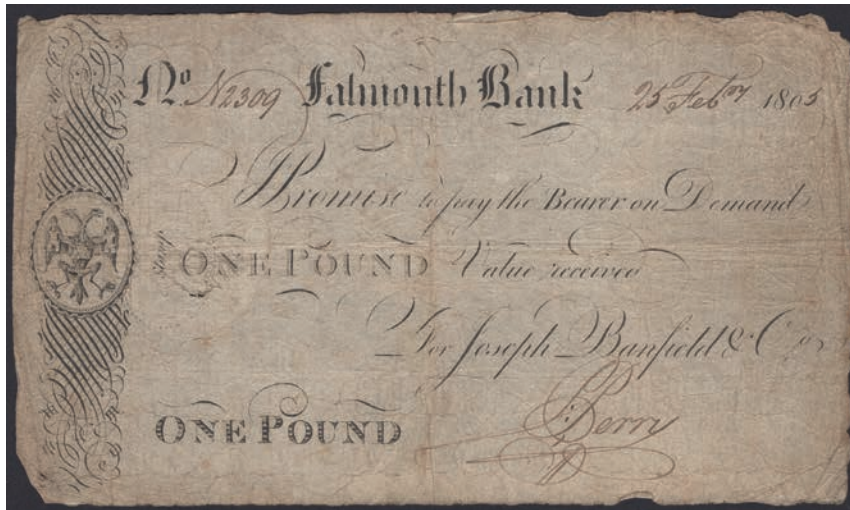 No N2309 Falmouth Bank 25 Febry 1805
I Promise to pay the Bearer on Demand
Stamp
ONE POUND Value received
For Joseph Banfield & Co
ONE POUND
Berry